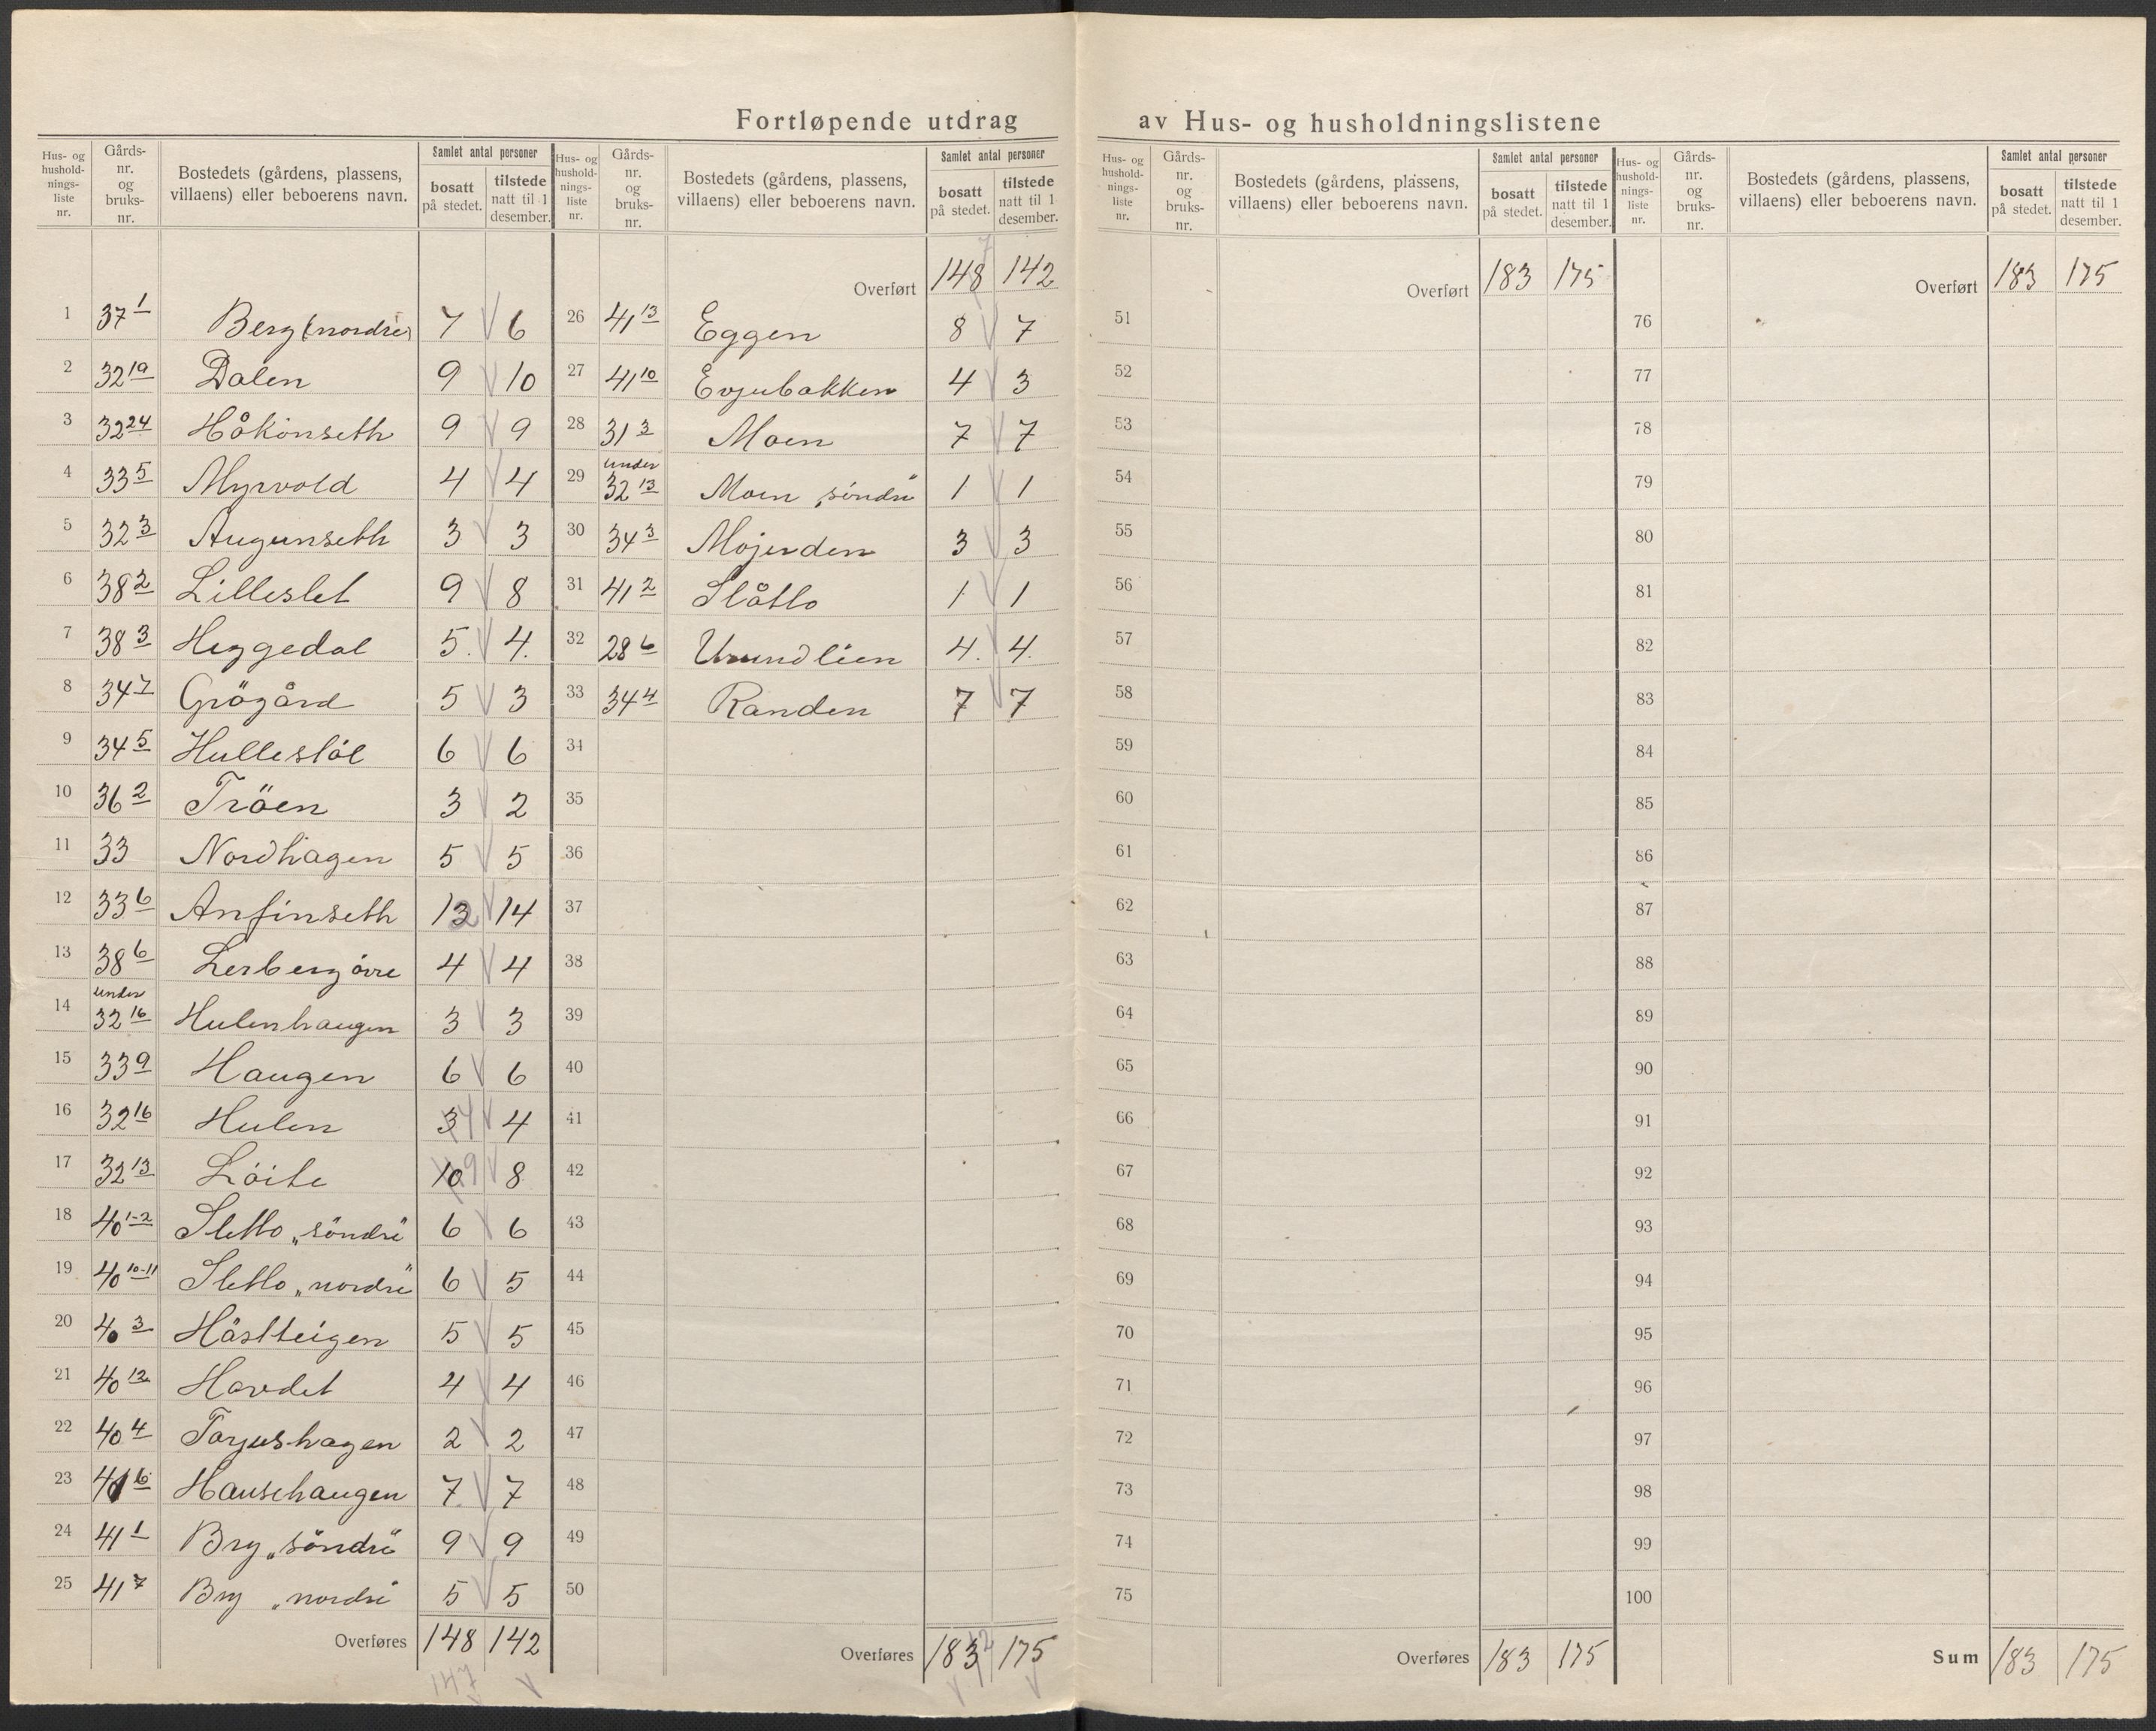 Fortløpende utdrag av Hus- og husholdningslistene
Hus- og hushold-nings-liste nr. | Gårds-nr. og bruks-nr. | Bostedets (gårdens, plassens, villaens) eller beboerens navn. | Samlet antal personer | bosatt på stedet. | tilstede natt til 1 desember.
1 37 1 Berg (nordre) 7 6
2 32 19 Dalen 9 10
3 32 24 Håkonseth 9 9
4 33 5 Myrvold 4 4
5 32 3 Augunseth 3 3
6 38 2 Lilleslet 9 8
7 38 3 Heggedal 5. 4.
8 34 7 Grögård 5 3
9 34 5 Hulleslöl 6 6
10 36 2 Tröen 3 2
11 33 Nordhagen 5 5
12 33 6 Anfinseth 12 14
13 38 6 Lerberg övre 4 4
14 under 32 16 Hulenhaugen 3 3
15 33 9 Haugen 6 6
16 32 16 Hulen 3 4 4
17 32 13 Löite 10 9 8
18 40 1-2 Sletto „söndre" 6 6
19 40 10-11 Sletto „nordre" 6 5
20 40 3 Håstteigen 5 5
21 40 12 Hovdet 4 4
22 40 4 Torjushagen 2 2
23 41 6 Hausehaugen 7 7
24 41 1 Bry „söndre" 9 9
25 41 7 Bry „nordre" 5 5
Overføres 148 142
147
Hus- og hushold-nings-liste nr. | Gårds-nr. og bruks-nr. | Bostedets (gårdens, plassens, villaens) eller beboerens navn. | Samlet antal personer | bosatt på stedet. | tilstede natt til 1 desember.
7
Overført 148 142
26 41 13 Eggen 8 7
27 41 10 Evjubakken 4 3
28 31 3 Moen 7 7
29 under 32 13 Moen „söndre" 1 1
30 34 3 Mojorden 3 3
31 41 2 Slåtto 1 1
32 28 6 Urundlien 4. 4.
33 34 4 Randen 7 7
34
35
36
37
38
39
40
41
42
43
44
45
46
47
48
49
50
Overføres 183 2 175
Hus- og hushold-nings-liste nr. | Gårds-nr. og bruks-nr. | Bostedets (gårdens, plassens, villaens) eller beboerens navn. | Samlet antal personer | bosatt på stedet. | tilstede natt til 1 desember.
Overført 183 175
51
52
53
54
55
56
57
58
59
60
61
62
63
64
65
66
67
68
69
70
71
72
73
74
75
Overføres 183 175
Hus- og hushold-nings-liste nr. | Gårds-nr. og bruks-nr. | Bostedets (gårdens, plassens, villaens) eller beboerens navn. | Samlet antal personer | bosatt på stedet. | tilstede natt til 1 desember.
Overført 183 175
76
77
78
79
80
81
82
83
84
85
86
87
88
89
90
91
92
93
94
95
96
97
98
99
100
Sum 183 175